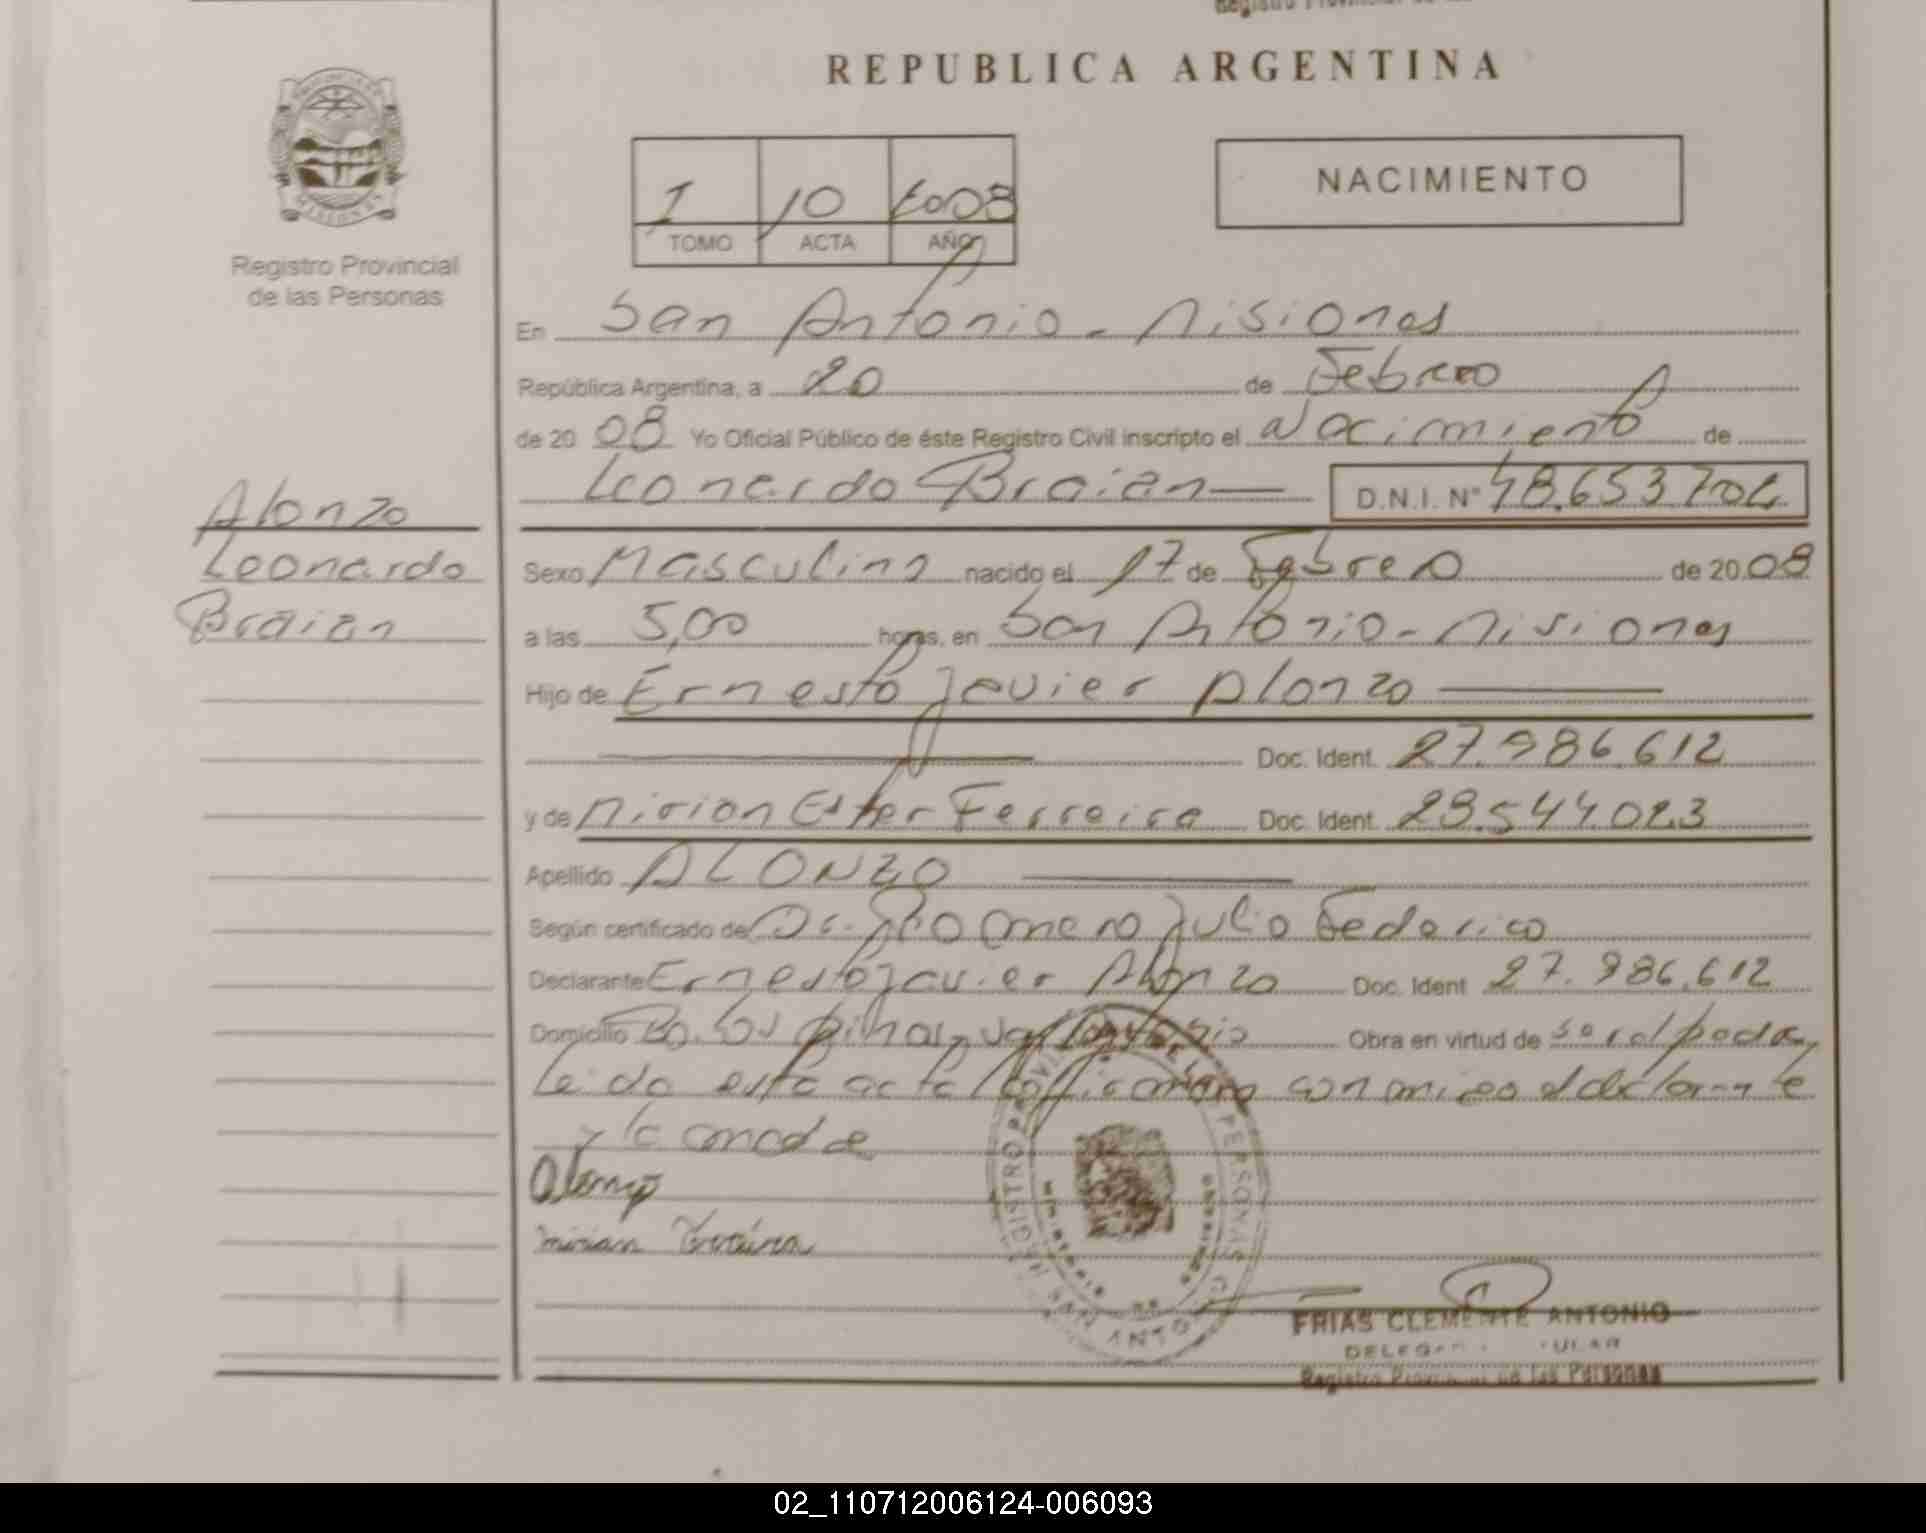 REPUBLICA ARGENTINA
I 10 2008
TOMO ACTA AÑO
NACIMIENTO
MISIONES
Registro Provincial
de las Personas
En San Antonio - Misiones
República Argentina, a 20 de Febrero
de 20 08 Yo Oficial Público de éste Registro Civil inscripto el Nacimiento de
Leonardo Braian D.N.I. Nº 48.653704
Alonzo
Leonardo
Braian
Sexo Masculino nacido el 17 de Febrero de 20 08
a las 5,00 horas, en San Antonio - Misiones
Hijo de Ernesto Javier Alonzo
Doc. Ident. 27.986.612
y de Mirian Ester Ferreira Doc. Ident. 29.544.023
Apellido ALONZO
Según certificado de Dr. Romero Julio Federico
Declarante Ernesto Javier Alonzo Doc. Ident 27.986.612
Domicilio Bo. Los Pinos, San Antonio Obra en virtud de
Leida esta acta la firman con migo el declarante
y la madre
Alonzo
Mirian Ferreira
SAN ANTO
FRIAS CLEMENTE ANTONIO
Registro Provincial de las Personas
02_110712006124-006093